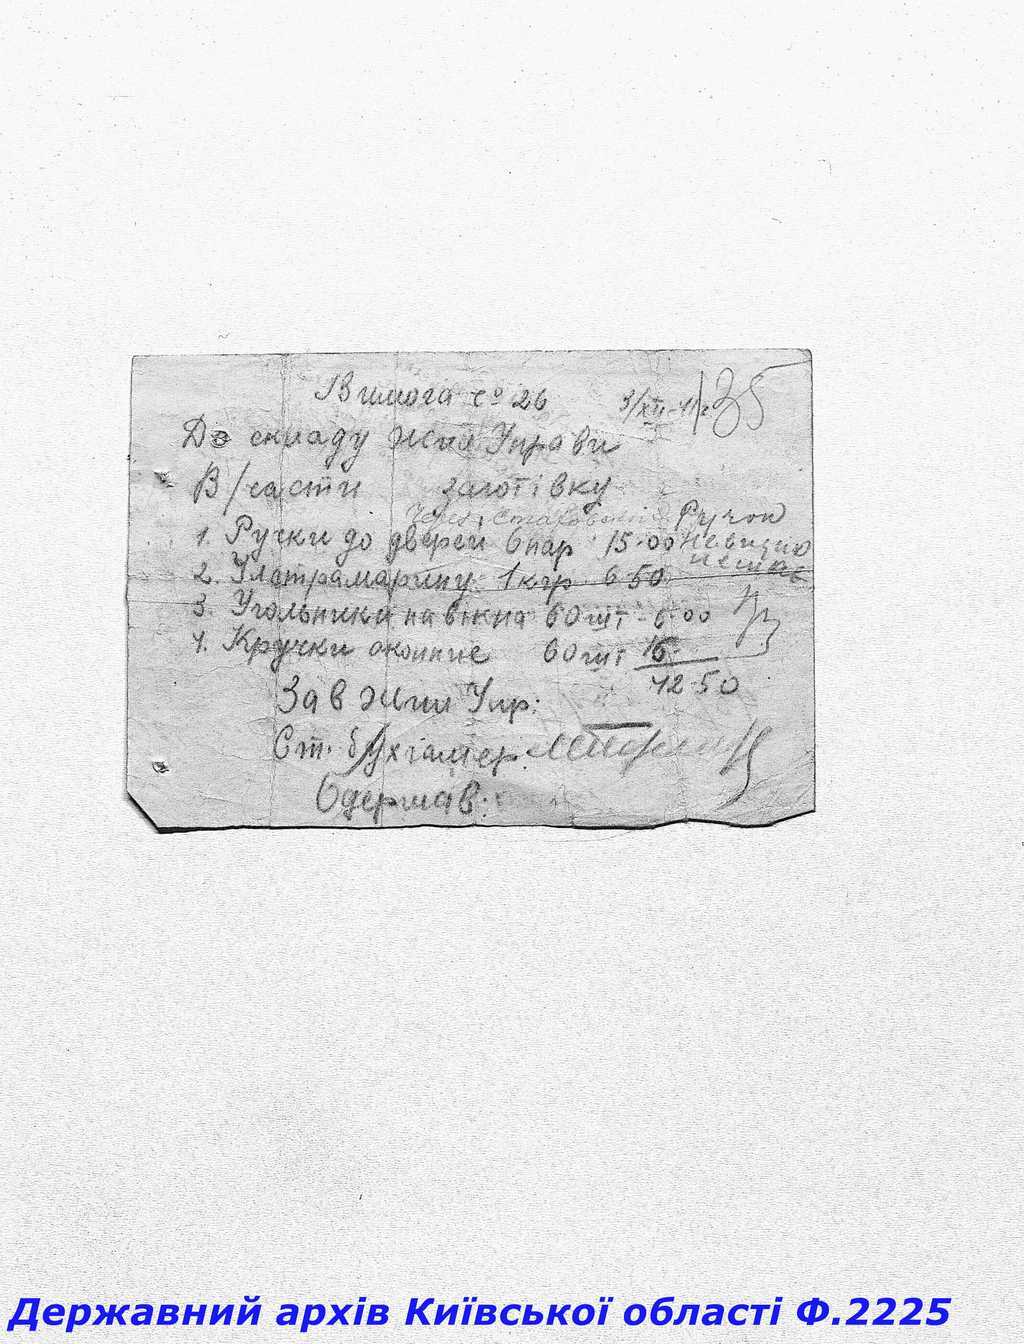 Вимога №26 3/XII-41 г 135
До складу Жил Управи
В/части заготівку
1. Ручки до дверей 6 пар 15-00 Ручок
2. Ультрамарину 1 кгр 6 50 немає
3. Угольники на вікна 60 шт - 6-00
4. Крючки оконние 60 шт 15
42-50
Зав Жил Упр:
Ст. бухгалтер:
Одержав:
Державний архів Київської області Ф.2225